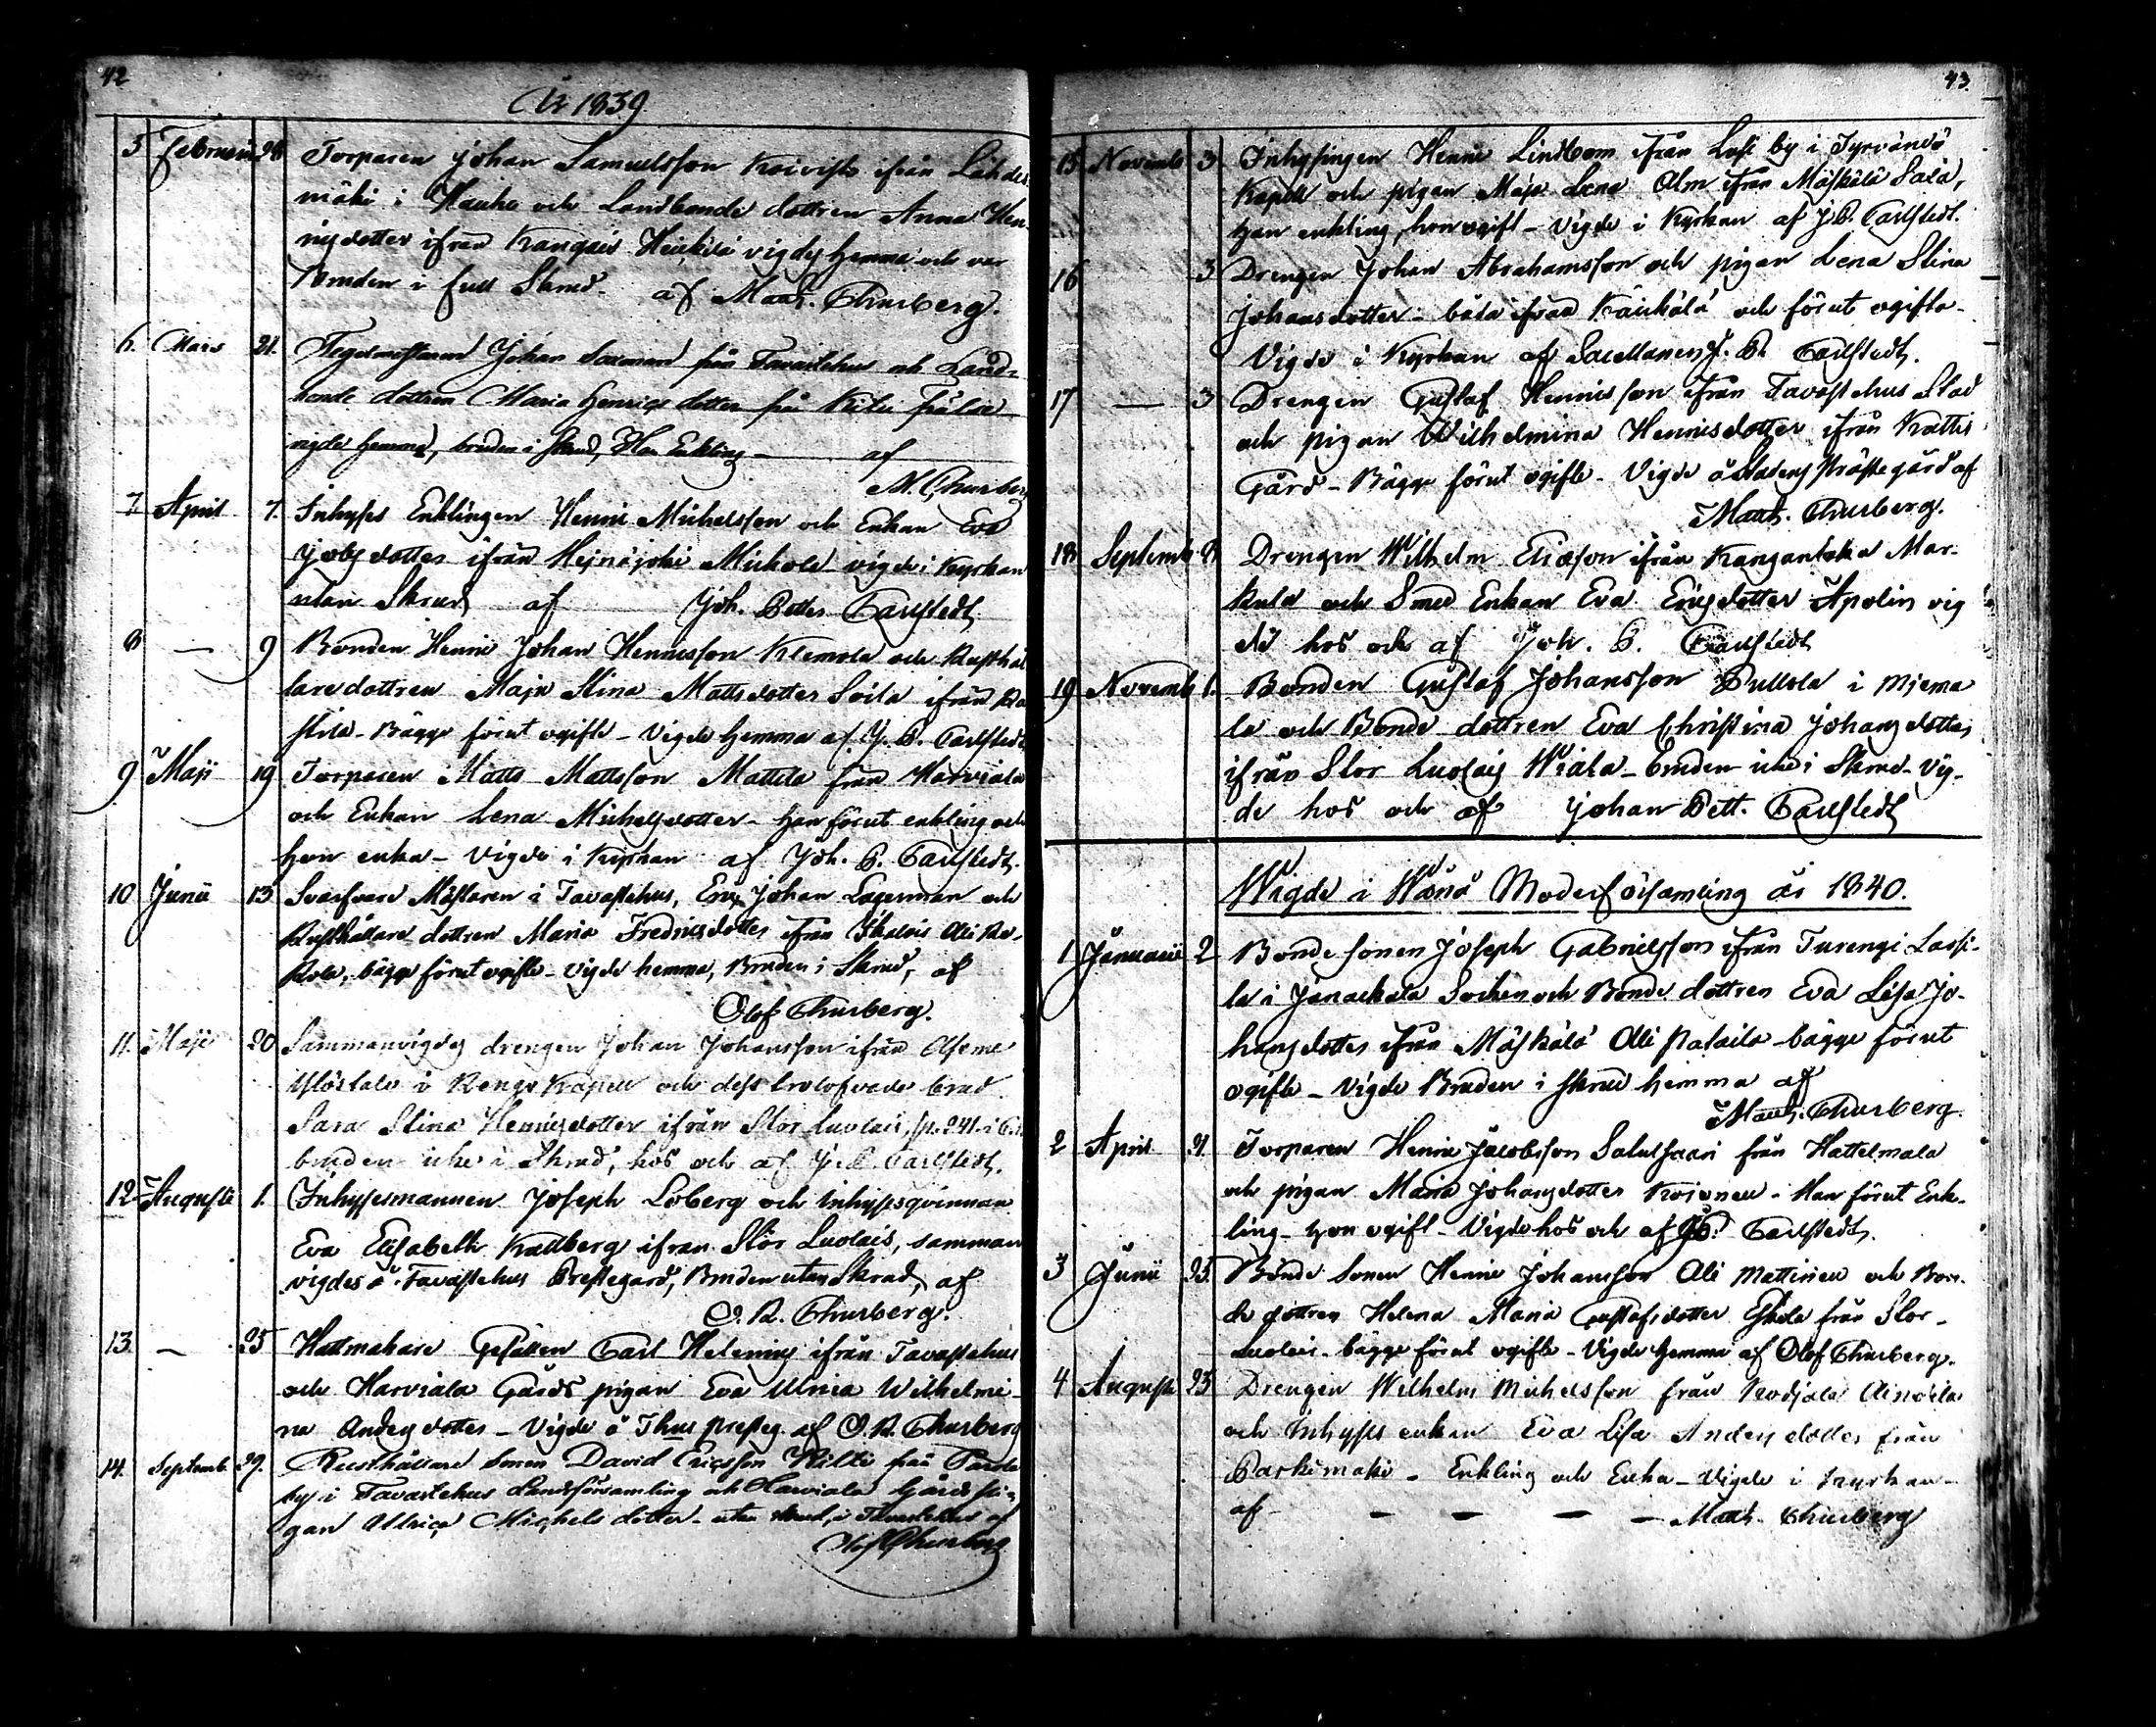 42
År 1839.
5 Februarii 28 Torparen Johan Samuelsson Koivisto ifrån Lähdes
mäki i Hauho och Landbonde dottren Anna Hen-
ricsdotter ifrån Kangais Heickilä vigdes hemma och var
Bruden i full Skrud. af Math. Thurberg.
6. Mars 21. Tegelmästaren Johan Saxman från Tavastehus och Land-
bonde dottren Maria Henrics dotter från
vigde hemma, bruden i skrud, Han Enkling af
M. Thurberg
7. April 7. Inhyses Enklingen Henric Michelsson och Enkan Eva
Jobsdotter ifrån Heinäjoki Mickola vigde i Kyrkan
utan Skrud af Joh. Petter Carlstedt
8 — 9 Bonden Henric Johan Henricsson Klemola och Rusthål
lare dottren Maja Stina Mattsdotter Soila ifrån
Bägge förut ogifte - Vigde hemma af J. P. Carlstedt
9 Maji 19 Torparen Matts Mattsson Mattila från Harviala
och Enkan Lena Michelsdotter - han förut enkling och
hon enka - Vigde i Kyrkan af Joh. P. Carlstedt.
10 Junii 13 Svarfvare Mästaren i Tavastehus, Eric Johan Lagerman och
Rusthållare dottren Maria Fredricsdotter ifrån Ikalois Alli
bägge förut ogifte - vigde hemma, Bruden i Skrud, af
Olof Thurberg.
11. Maji 20 Sammanvigdes drengen Johan Johansson ifrån
Ylöstalo i Rengo Kapell och dess trolofvade brud
Sara Stina Henricsdotter ifrån Stor Luolais, p. 241. i
bruden icke i Skrud, hos och af J. P. Carlstedt.
12 Augusti 1. Inhysesmannen Joseph Loberg och inhysesqvinnan
Eva Elisabeth Kallberg ifrån Stor Luolais, samman
vigdes å Tavastehus Prestegård, Bruden utan Skrud, af
O. R. Thurberg.
13. — 25 Hattmakare Gesällen Carl Helenius ifrån Tavastehus
och Harviala Gårds pigan Eva Ulrica Wilhelmi-
na Anders dotter - Vigde å Thus presteg. af O. R. Thurberg
14. Septemb. 29. Rusthållare Sonen David Ericsson Kilki från
by i Tavastehus Landsförsamling och Harviala Gårds pi-
gan Ulrica Michels dotter - utan skrud, i Tavastehus af
Olof Thurberg
43
15 Novemb 3 Inhysingen Henric Lindbom ifrån by i Tyrväntö
Kapell och pigan Maja Lena Alm ifrån Mäskälä Sala,
han enkling, hon ogift - Vigde i Kyrkan af J. P. Carlstedt.
16 3 Drengen Johan Abrahamsson och pigan Lena Stina
Johansdotter - båda ifrån Käikälä och förut ogifta -
Vigde i Kyrkan af Sacellanen J. P. Carlstedt.
17 — 3 Drengen Gustaf Henricsson ifrån Tavastehus Stad
och pigan Wilhelmina Henricsdotter ifrån Kattis
Gård - Bägge förut ogifte - Vigde å Stadens Prästegård af
Math. Thurberg.
18 Septemb 8 Drengen Wilhelm Ericsson ifrån Kangantaka Mar-
kula och Smed Enkan Eva Ericsdotter Apolin vig
de hos och af Joh. P. Carlstedt
19 Novemb 1. Bonden Gustaf Johansson Pullola i Miema
la och Bonde dottren Eva Christina Johansdotter
ifrån Stor Luolais Wiala - Bruden icke i Skrud - Vig-
de hos och af Johan Pett. Carlstedt
Wigde i Wånå Moderförsamling år 1840.
1 Januarii 2 Bonde sonen Joseph Gabrielsson ifrån Turengi Lassi-
la i Janackala Socken och Bonde dottren Eva Lisa Jo-
hansdotter ifrån Mäskälä Alli Rataila bägge förut
ogifte - Vigde Bruden i skrud hemma af
Math. Thurberg.
2 April 21. Torparen Henric Jacobsson Salutsaari från Hattelmala
och pigan Maria Johansdotter Koivonen - Han förut Enk-
ling - hon ogift - Vigde hos och af J. P. Carlstedt.
3 Junii 23. Bonde Sonen Henric Johansson Ali Mattinen och Bon-
de dottren Helena Maria Gustafsdotter från Stor-
Luolais - bägge förut ogifte - Vigde hemma af Olof Thurberg.
4 Augusti 23 Drengen Wilhelm Michelsson från Kodjala
och Inhyses enkan Eva Lisa Anders dotter från
Parkimäki - Enkling och Enka - Vigde i Kyrkan -
af - - - - Math. Thurberg